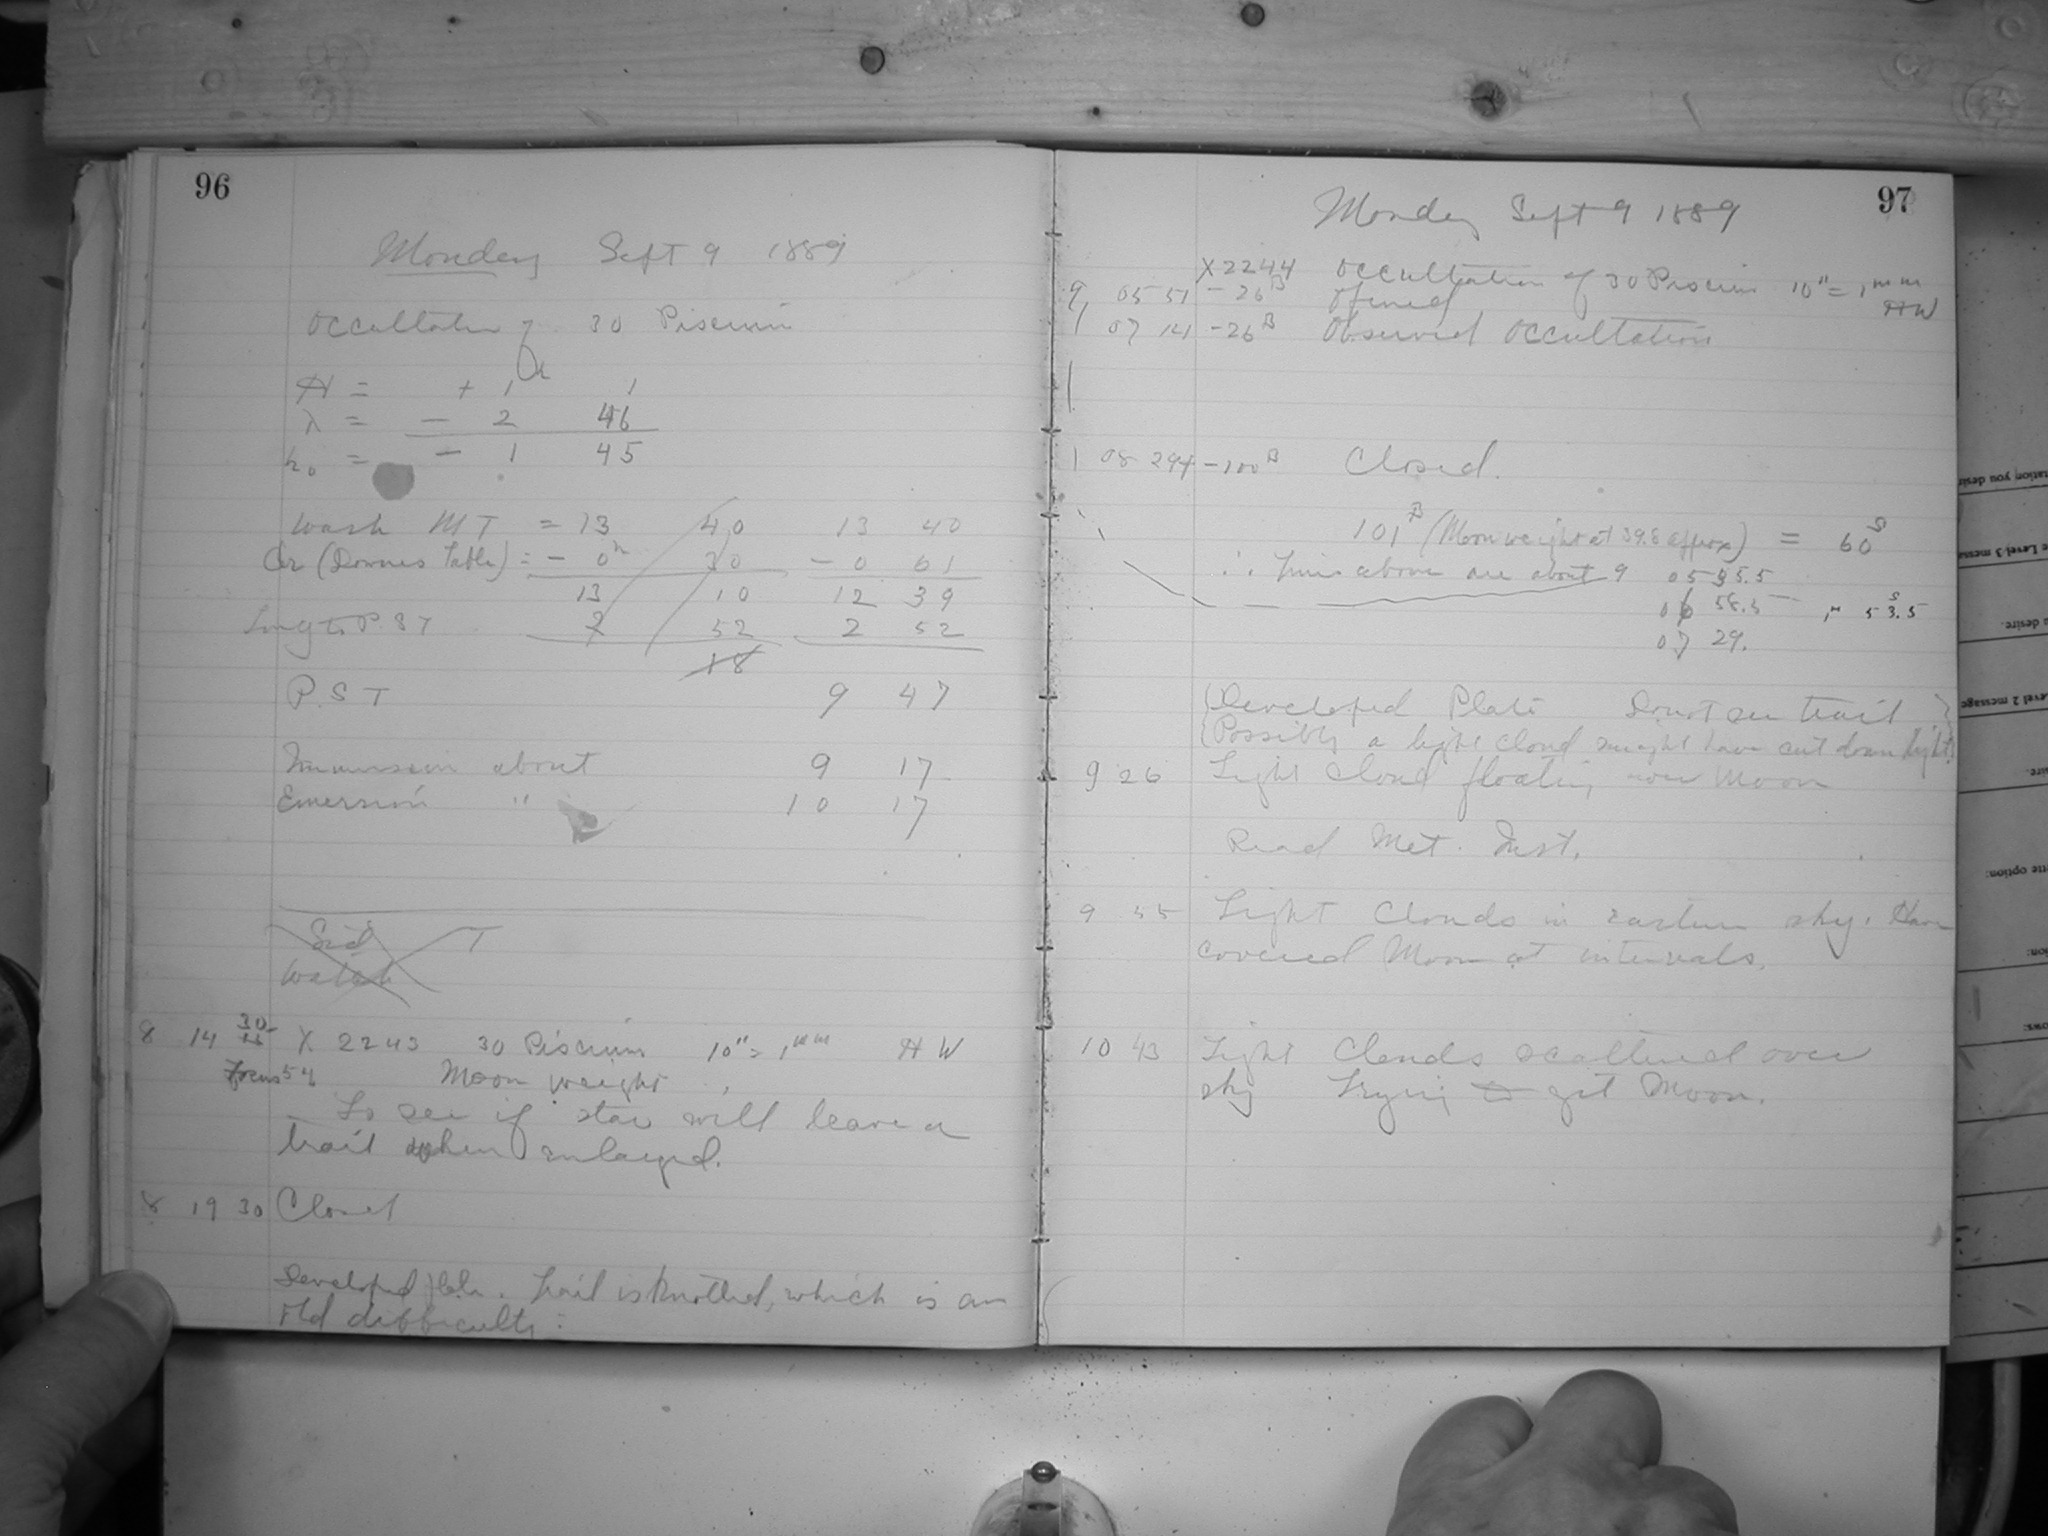 96
Monday Sept 9 1889
Occultation of 30 Piscium
H = + 1 1
λ = - 2 46
h₀ = - 1 45
Wash M T = 13 40 13 40
Cor (Downes Table) = - 0 30 - 0 61
13 10 12 39
Long to P.S T 2 52 2 52
18
P.S T 9 47
Immersion about 9 17
Emersion " 10 17
Sid T
Watch
8 14 30 X 2243 30 Piscium 10" = 1mm HW
Focus 54 Moon weight
To see if star will leave a
trail when enlarged.
8 19 30 Closed
Developed plate. Trail is knotted, which is an
old difficulty.
97
Monday Sept 9 1889
X2244 Occultation of 30 Piscium 10" = 1mm
HW
9 05 51 - 26B Opened
07 14 - 26B Observed Occultation
08 29 - 100B Closed.
101B (Moon weight at 39.8 approx) = 60s
∴ Times above are about 9 05 35.5
06 58.5 53.5
07 29.
Developed Plate Do not see trail
Possibly a light cloud might have cut down light
9 26 Light cloud floating over Moon
Read Met. Inst.
9 55 Light Clouds in eastern sky. Have
covered Moon at intervals.
10 43 Light Clouds scattered over
sky Trying to get Moon.